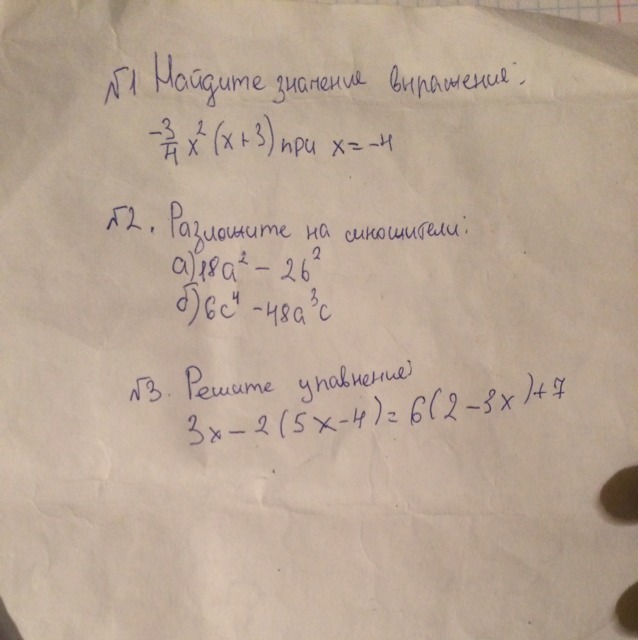 №1 Найдите значение выражение:
-3/4 x² (x+3) при x = -4
№2. Разложите на множители:
а) 18a² - 2b²
б) 6c⁴ - 48a³c
№3. Решите упавнение:
3x - 2(5x-4) = 6(2-3x)+7